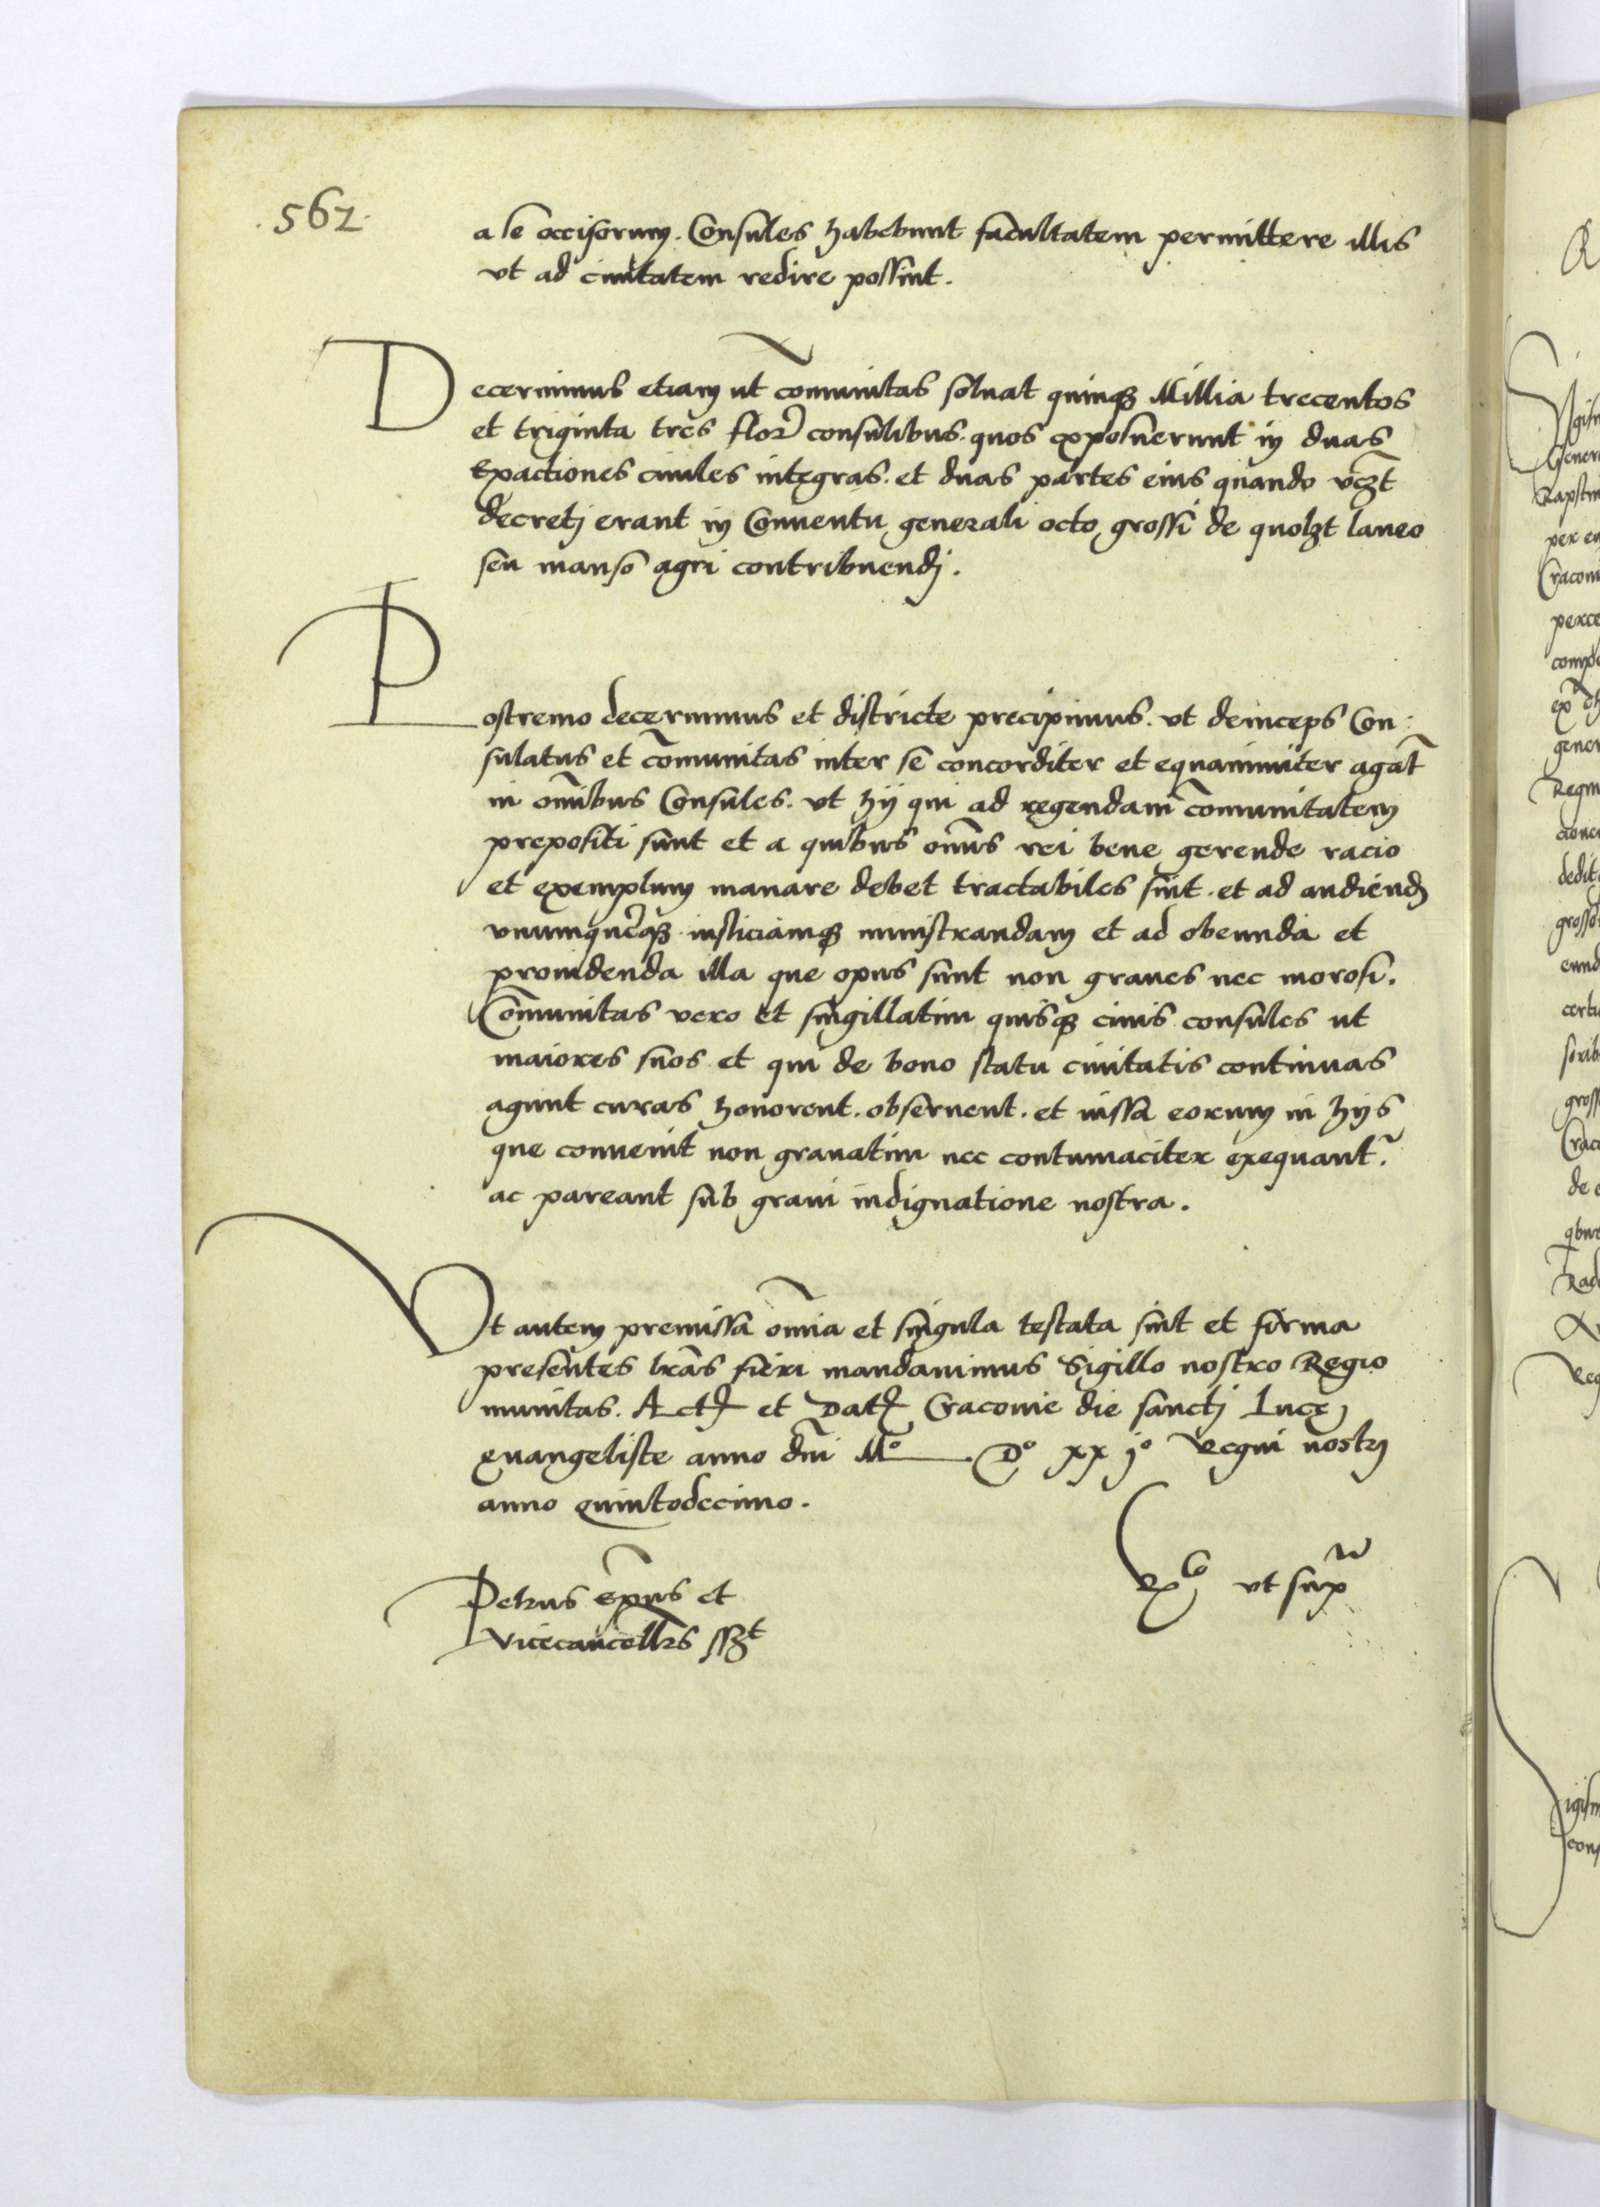 562
a se occisorum. Consules habebunt facultatem permittere illis
vt ad ciuitatem redire possint.
Decernimus etiam ut cōmunitas soluat quinqȝ Millia trecentos
et triginta tres flor̄ consulibus. quos exposuerunt in duas
Exactiones ciuiles integras. et duas partes eius quando vcȝt
decretj erant in Conuentu generali octo grossi de quolȝt laneo
seu manso agri contribuendj.
Postremo decernimus et districte precipimus. vt deinceps Con:
sulatus et cōmunitas inter se concorditer et equanimiter agāt
in om̄ibus Consules. vt hij qui ad regendam cōmunitatem
prepositi sunt et a quibus om̄is rei bene gerende racio
et exemplum manare debet tractabiles sint. et ad audiend
vnumquēqȝ iusticiamqȝ ministrandam et ad obeunda et
prouidenda illa que opus sunt non graues nec morosi.
Cōmunitas vero et singillatim quisqȝ ciuis consules ut
maiores suos et qui de bono statu ciuitatis continuas
agunt curas honorent. obseruent. et iussa eorum in hijs
que conuenit non grauatim nec contumaciter exequant̄.
ac pareant sub graui indignatione nostra.
Vt autem premissa om̄ia et singula testata sint et firma
presentes lr̄as fieri mandauimus Sigillo nostro Regio
munitas. Act et Dat Cracouie die sanctj Luce
euangeliste anno dn̄i Mº Dº xx jº Regni nostri
anno quintodecimo.
Petrus ep̄us et
Vicecancellr̄s sszt
vt sup̄